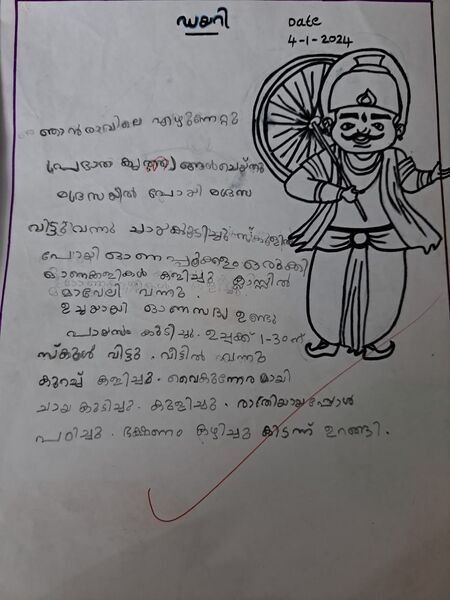 ഡയറി
Date
4-1-2024
ഞാൻ രാവിലെ എഴുന്നേറ്റു
പ്രഭാത കൃത്യങ്ങൾ ചെയ്തു
മദ്രസയിൽ പോയി മദ്രസ
വിട്ടുവന്നു ചായകുടിച്ചു സ്കൂളിൽ
പോയി ഓണപ്പൂക്കളം ഒരുക്കി
ഓണക്കളികൾ കളിച്ചു ക്ലാസ്സിൽ
മാവേലി വന്നു.
ഉച്ചയായി ഓണസദ്യ ഉണ്ടു
പായസം കുടിച്ചു. ഉച്ചക്ക് 1-30ന്
സ്കൂൾ വിട്ടു. വീട്ടിൽ വന്നു
കുറച്ച് കളിച്ചു. വൈകുന്നേരമായി
ചായ കുടിച്ചു. കുളിച്ചു. രാത്രിയായപ്പോൾ
പഠിച്ചു. ഭക്ഷണം കഴിച്ചു കിടന്ന് ഉറങ്ങി.